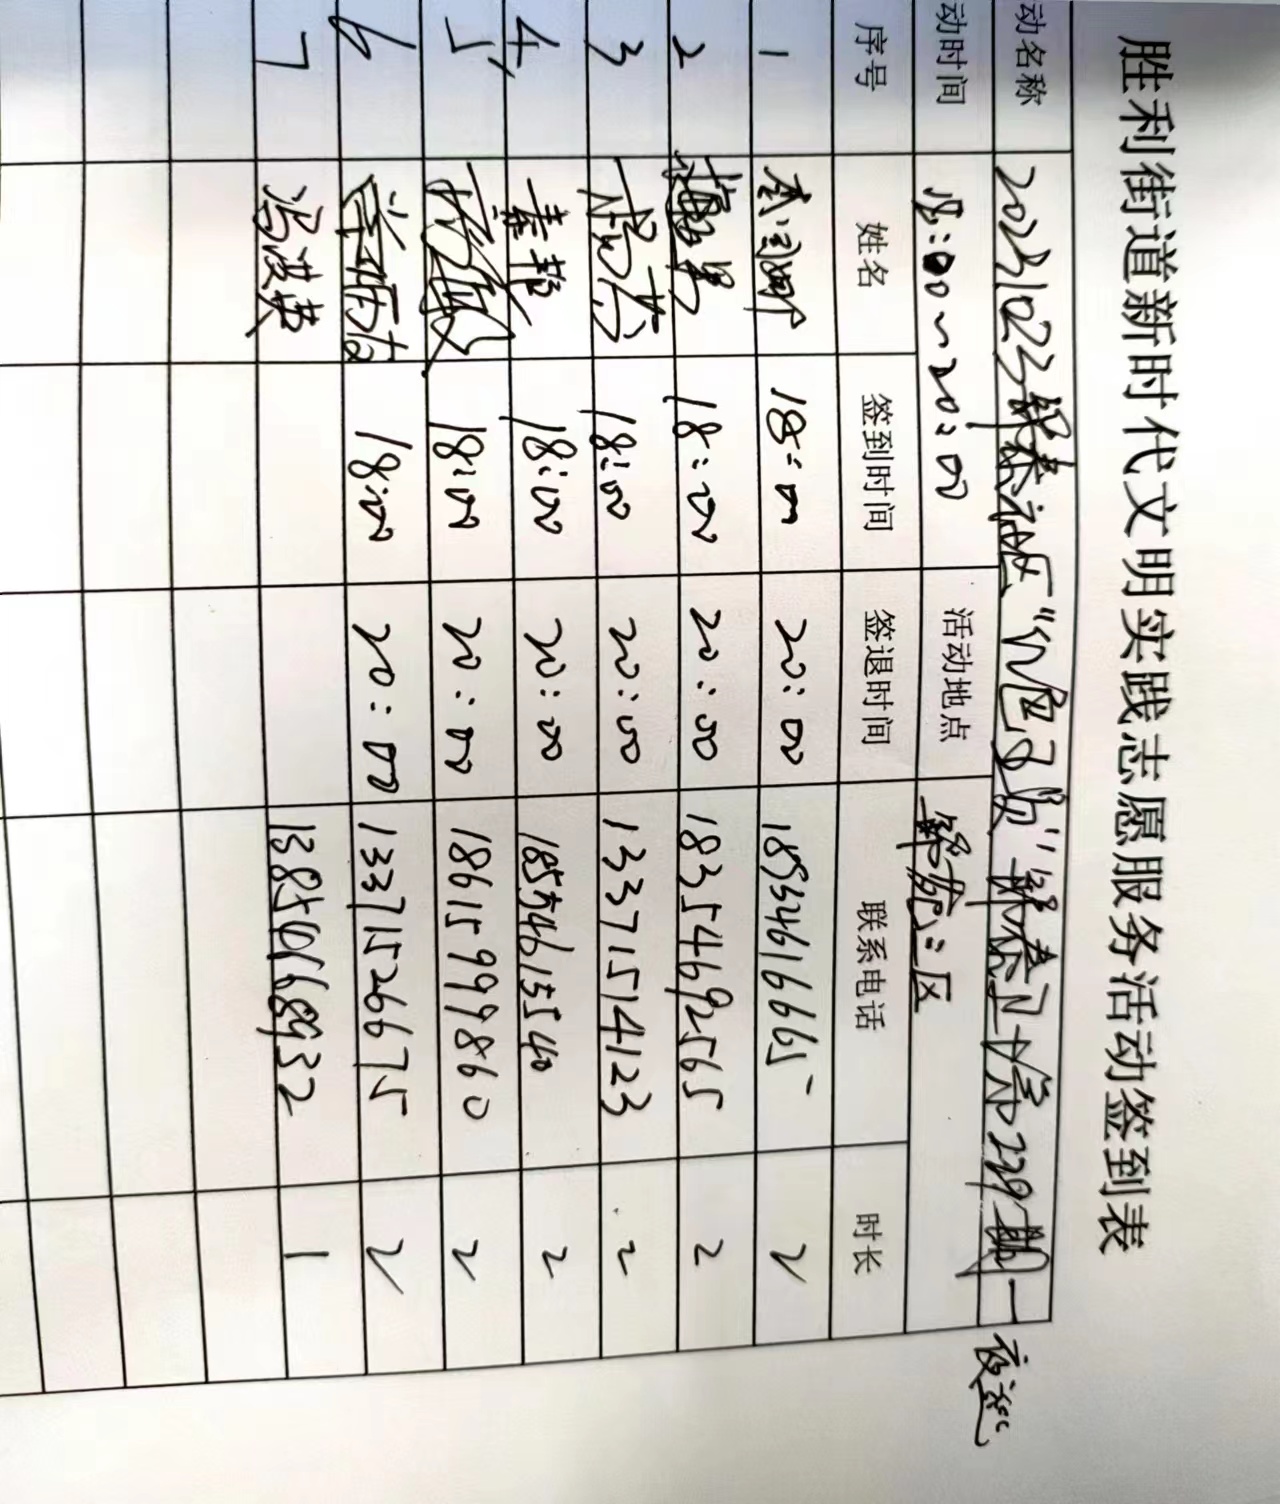 胜利街道新时代文明实践志愿服务活动签到表
动名称 20231023锦泰社区“红色马甲”锦泰卫士第229期一夜巡
动时间 18:00~20:00 活动地点 锦苑三区
序号 姓名 签到时间 签退时间 联系电话 时长
1 18:00 20:00 189324616665 2
2 18:00 20:00 18354692565 2
3 18:00 20:00 13371514123 2
4 18:00 20:00 18554615540 2
5 18:00 20:00 18615999860 2
6 18:00 20:00 13371526675 2
7 冯洪英 1